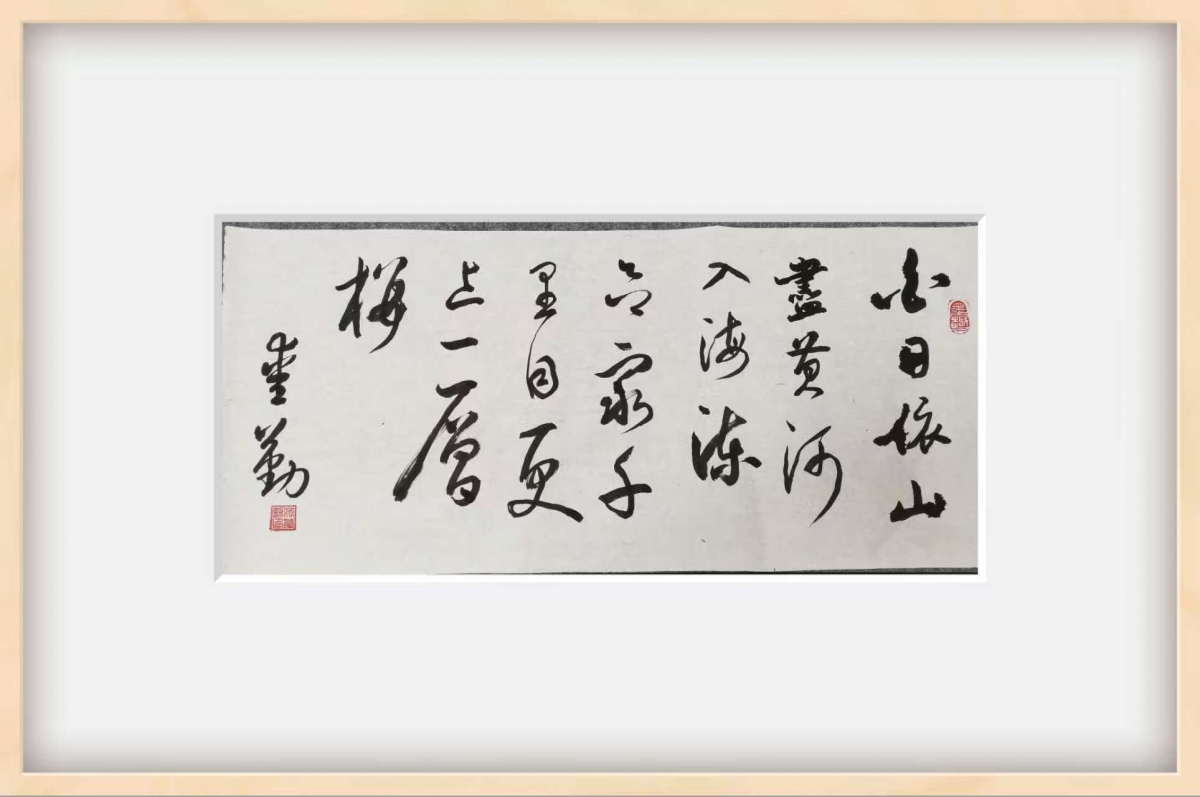 白日依山
盡黄河
入海流
欲窮千
里目更
上一層
樓
勤